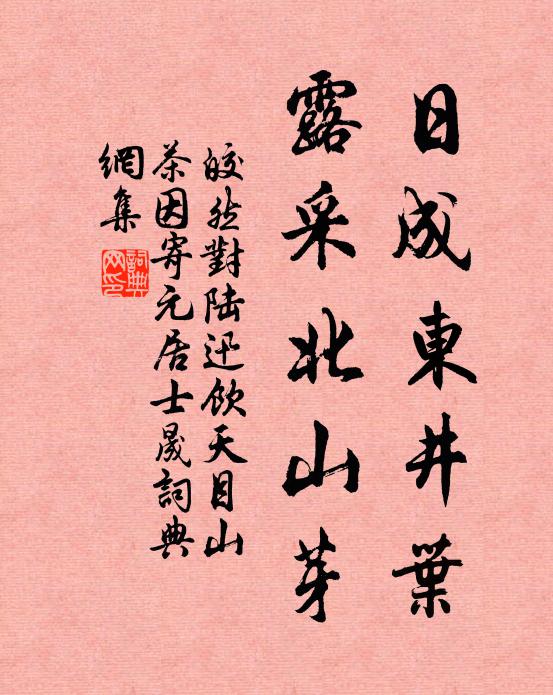 日成東井葉
露采北山芽
皎然對陆迅飲天目山
茶因寄元居士晟詞典
網集
詞典
网印